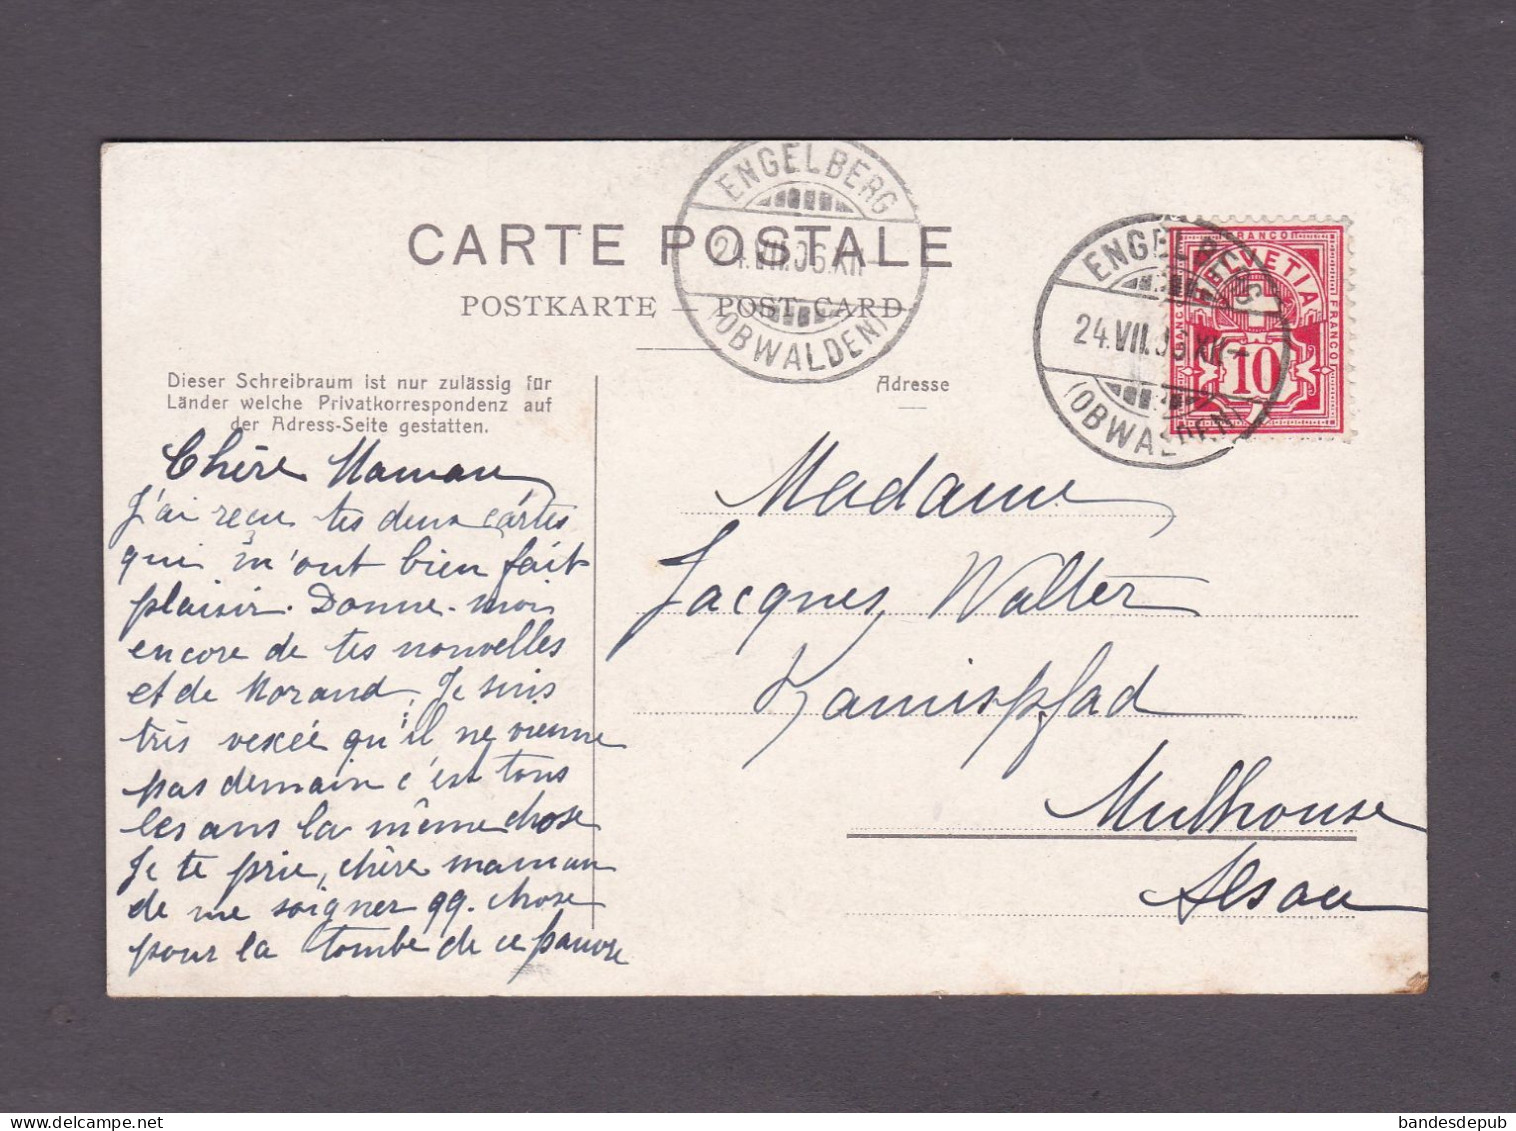 CARTE POSTALE
POSTKARTE — POST CARD
ENGELBERG
24.VII.06.XII—
(OBWALDEN)
ENGELBERG
24.VII.06.XII—
(OBWALDEN)
FRANCO
HELVETIA
FRANCO
FRANCO
10
Dieser Schreibraum ist nur zulässig für
Länder welche Privatkorrespondenz auf
der Adress-Seite gestatten.
Adresse
Chère Maman
J'ai reçu tes deux cartes
qui m'ont bien fait
plaisir. Donne-moi
encore de tes nouvelles
et de Morand. Je suis
très vexée qu'il ne vienne
pas demain c'est tous
les ans la même chose
Je te prie, chère maman
de me soigner qq. chose
pour la tombe de ce pauvre
Madame
Jacques Walter
Mulhouse
Alsace
bandesdepub